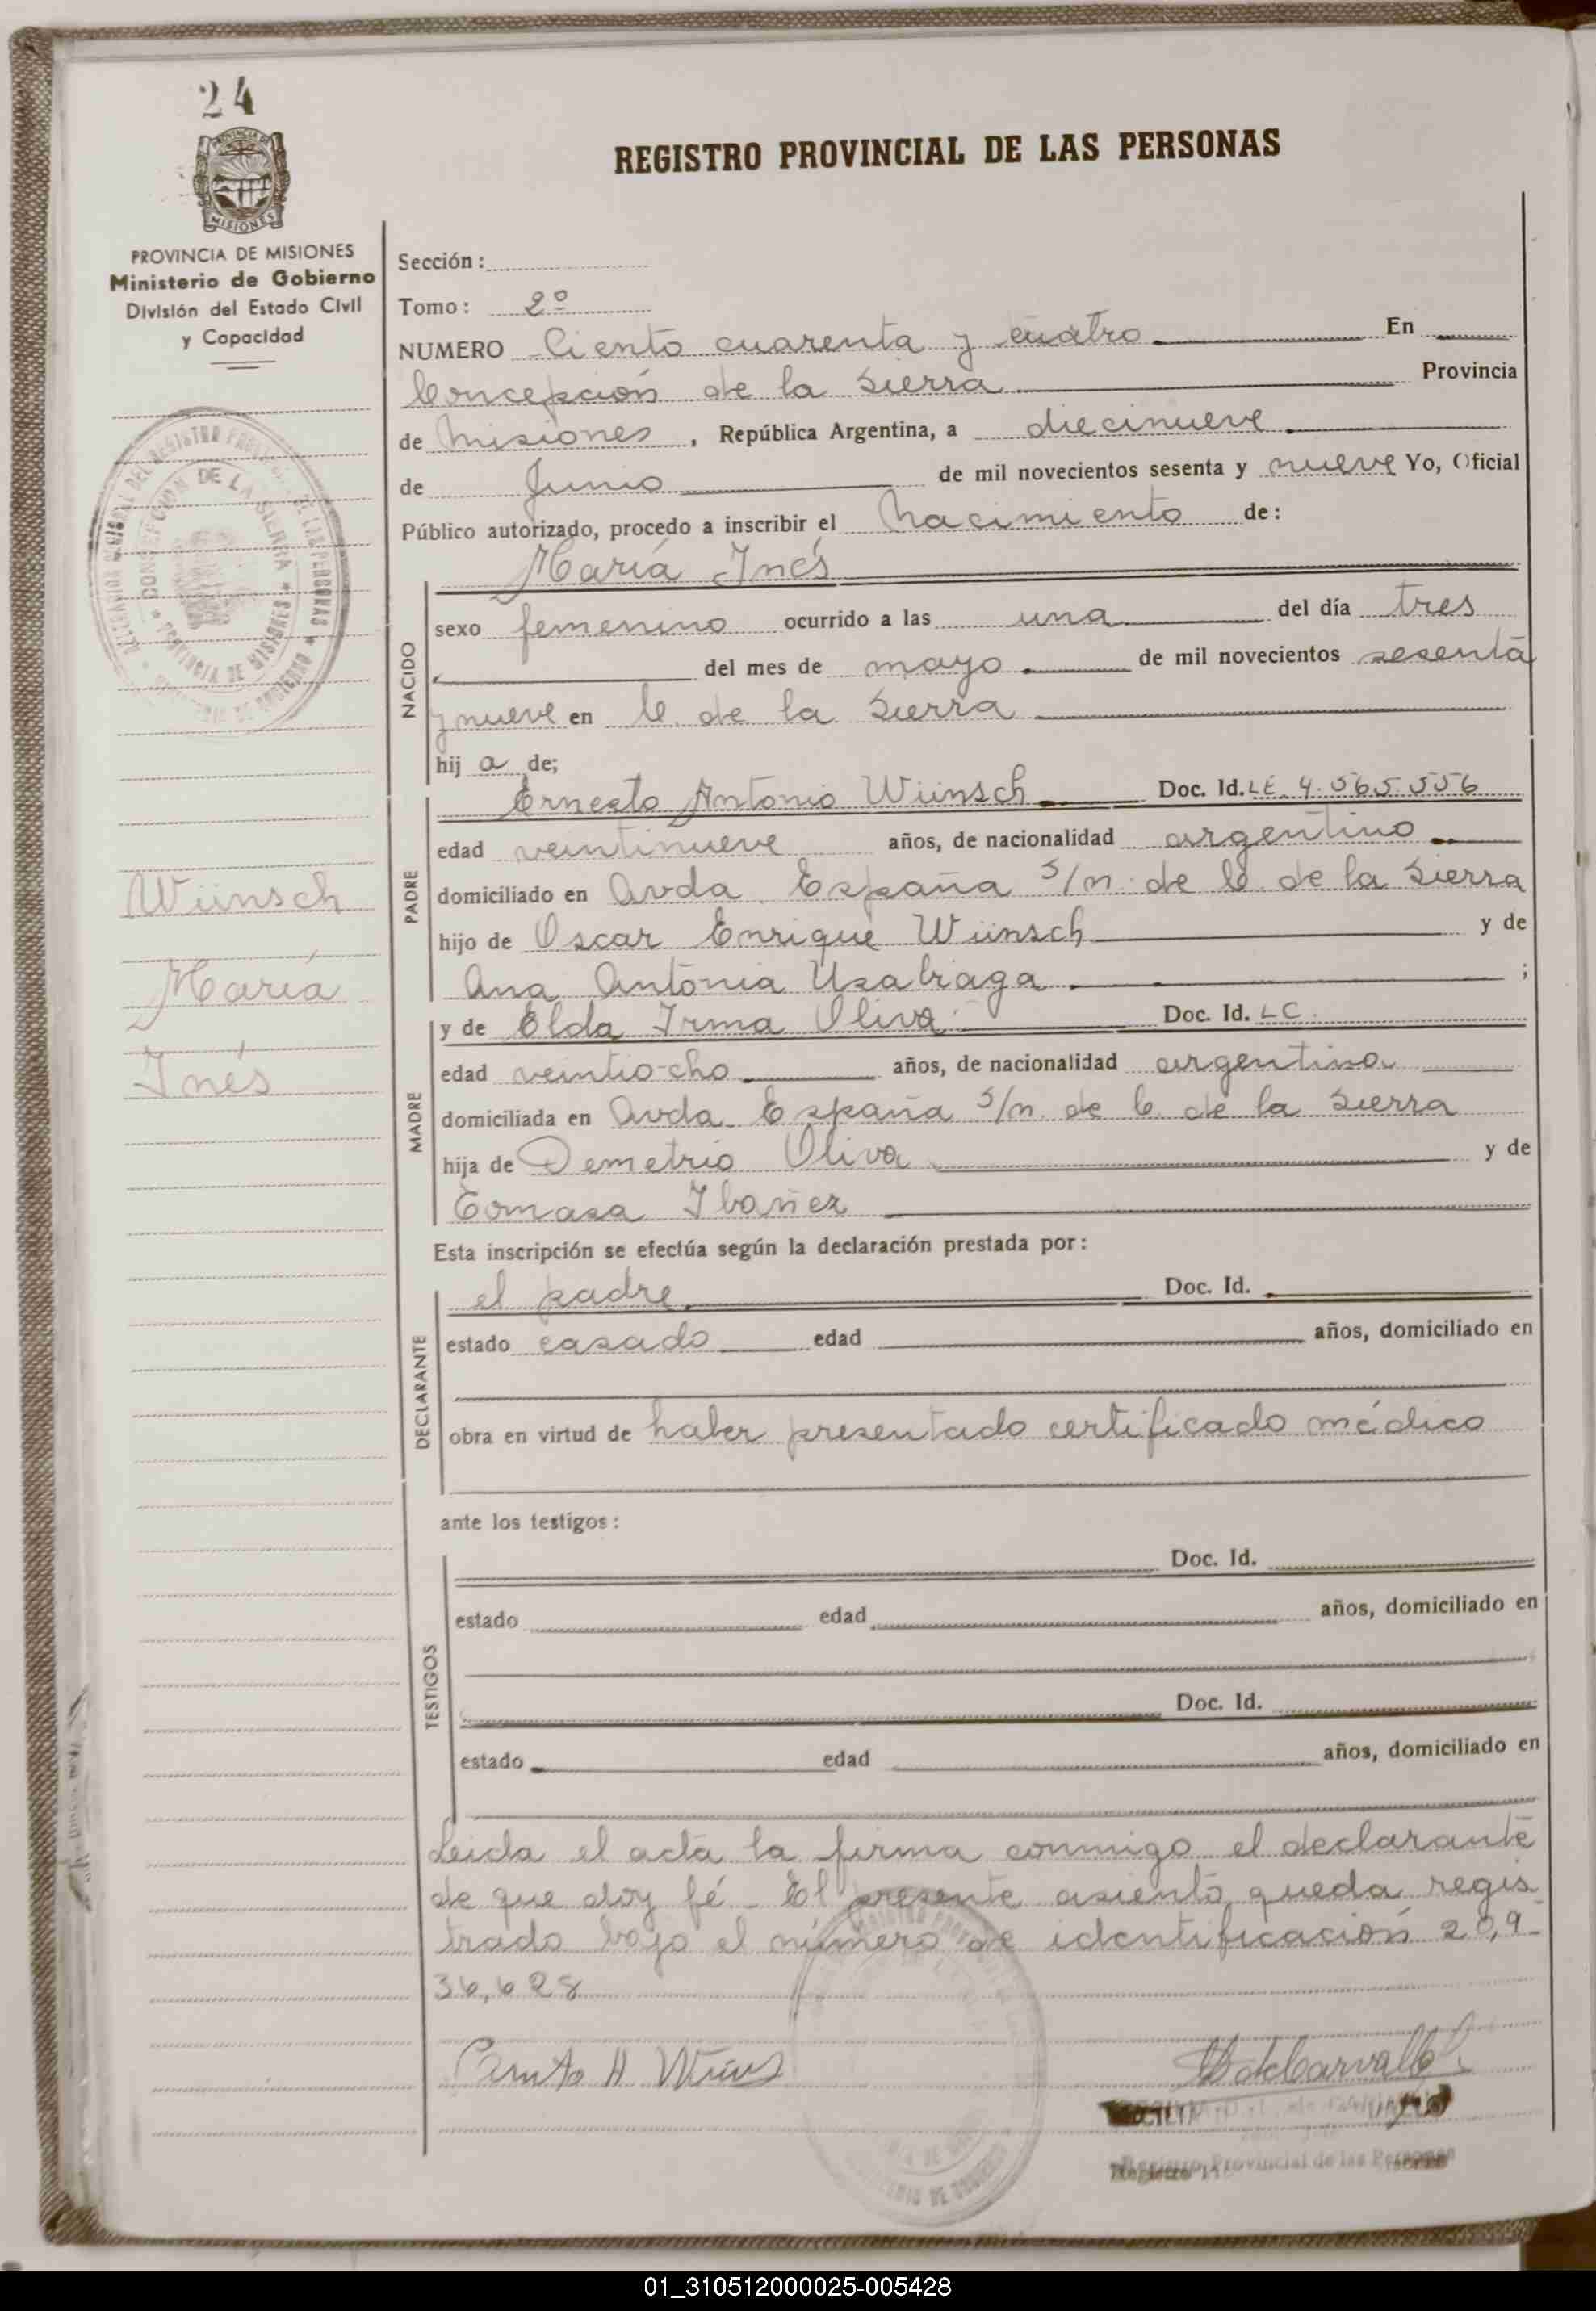 24
REGISTRO PROVINCIAL DE LAS PERSONAS
PROVINCIA DE MISIONES
Ministerio de Gobierno
División del Estado Civil
y Capacidad
Sección:
Tomo: 2º
NUMERO Ciento cuarenta y cuatro En
Concepción de la Sierra Provincia
de Misiones, República Argentina, a diecinueve
de Junio de mil novecientos sesenta y nueve Yo, Oficial
Público autorizado, procedo a inscribir el Nacimiento de:
María Inés
NACIDO
sexo femenino ocurrido a las una del día tres
del mes de mayo de mil novecientos sesenta
y nueve en C. de la Sierra
hij a de;
Ernesto Antonio Wünsch Doc. Id. LE 4.565.556
PADRE
edad veintinueve años, de nacionalidad argentino
domiciliado en Avda. España s/n. de C. de la Sierra
hijo de Oscar Enrique Wünsch y de
Ana Antonia ;
y de Elda Irma Oliva Doc. Id. LC
MADRE
edad veintiocho años, de nacionalidad argentina
domiciliada en Avda. España s/n. de C. de la Sierra
hija de Demetrio Oliva y de
Tomasa Ibañez
Wünsch
María
Inés
Esta inscripción se efectúa según la declaración prestada por:
el padre Doc. Id.
DECLARANTE
estado casado edad años, domiciliado en
obra en virtud de haber presentado certificado médico
ante los testigos:
Doc. Id.
TESTIGOS
estado edad años, domiciliado en
Doc. Id.
estado edad años, domiciliado en
Leida el acta la firma conmigo el declarante
de que doy fé - El presente asiento queda regis
trado bajo el número de identificación 20,9-
36,628
Registro Provincial de las Personas
01_310512000025-005428